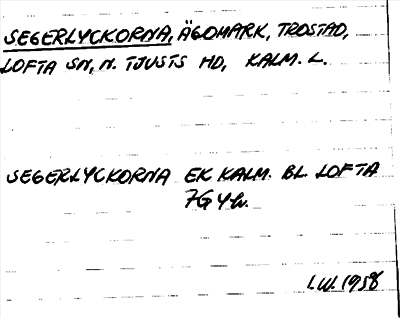 SEGERLYCKORNA, ÄGOMARK, TROSTAD,
LOFTA SN, N. TJUSTS HD, KALM. L.
SEGERLYCKORNA EK KALM. BL. LOFTA
7G4h.
I.W. 1958